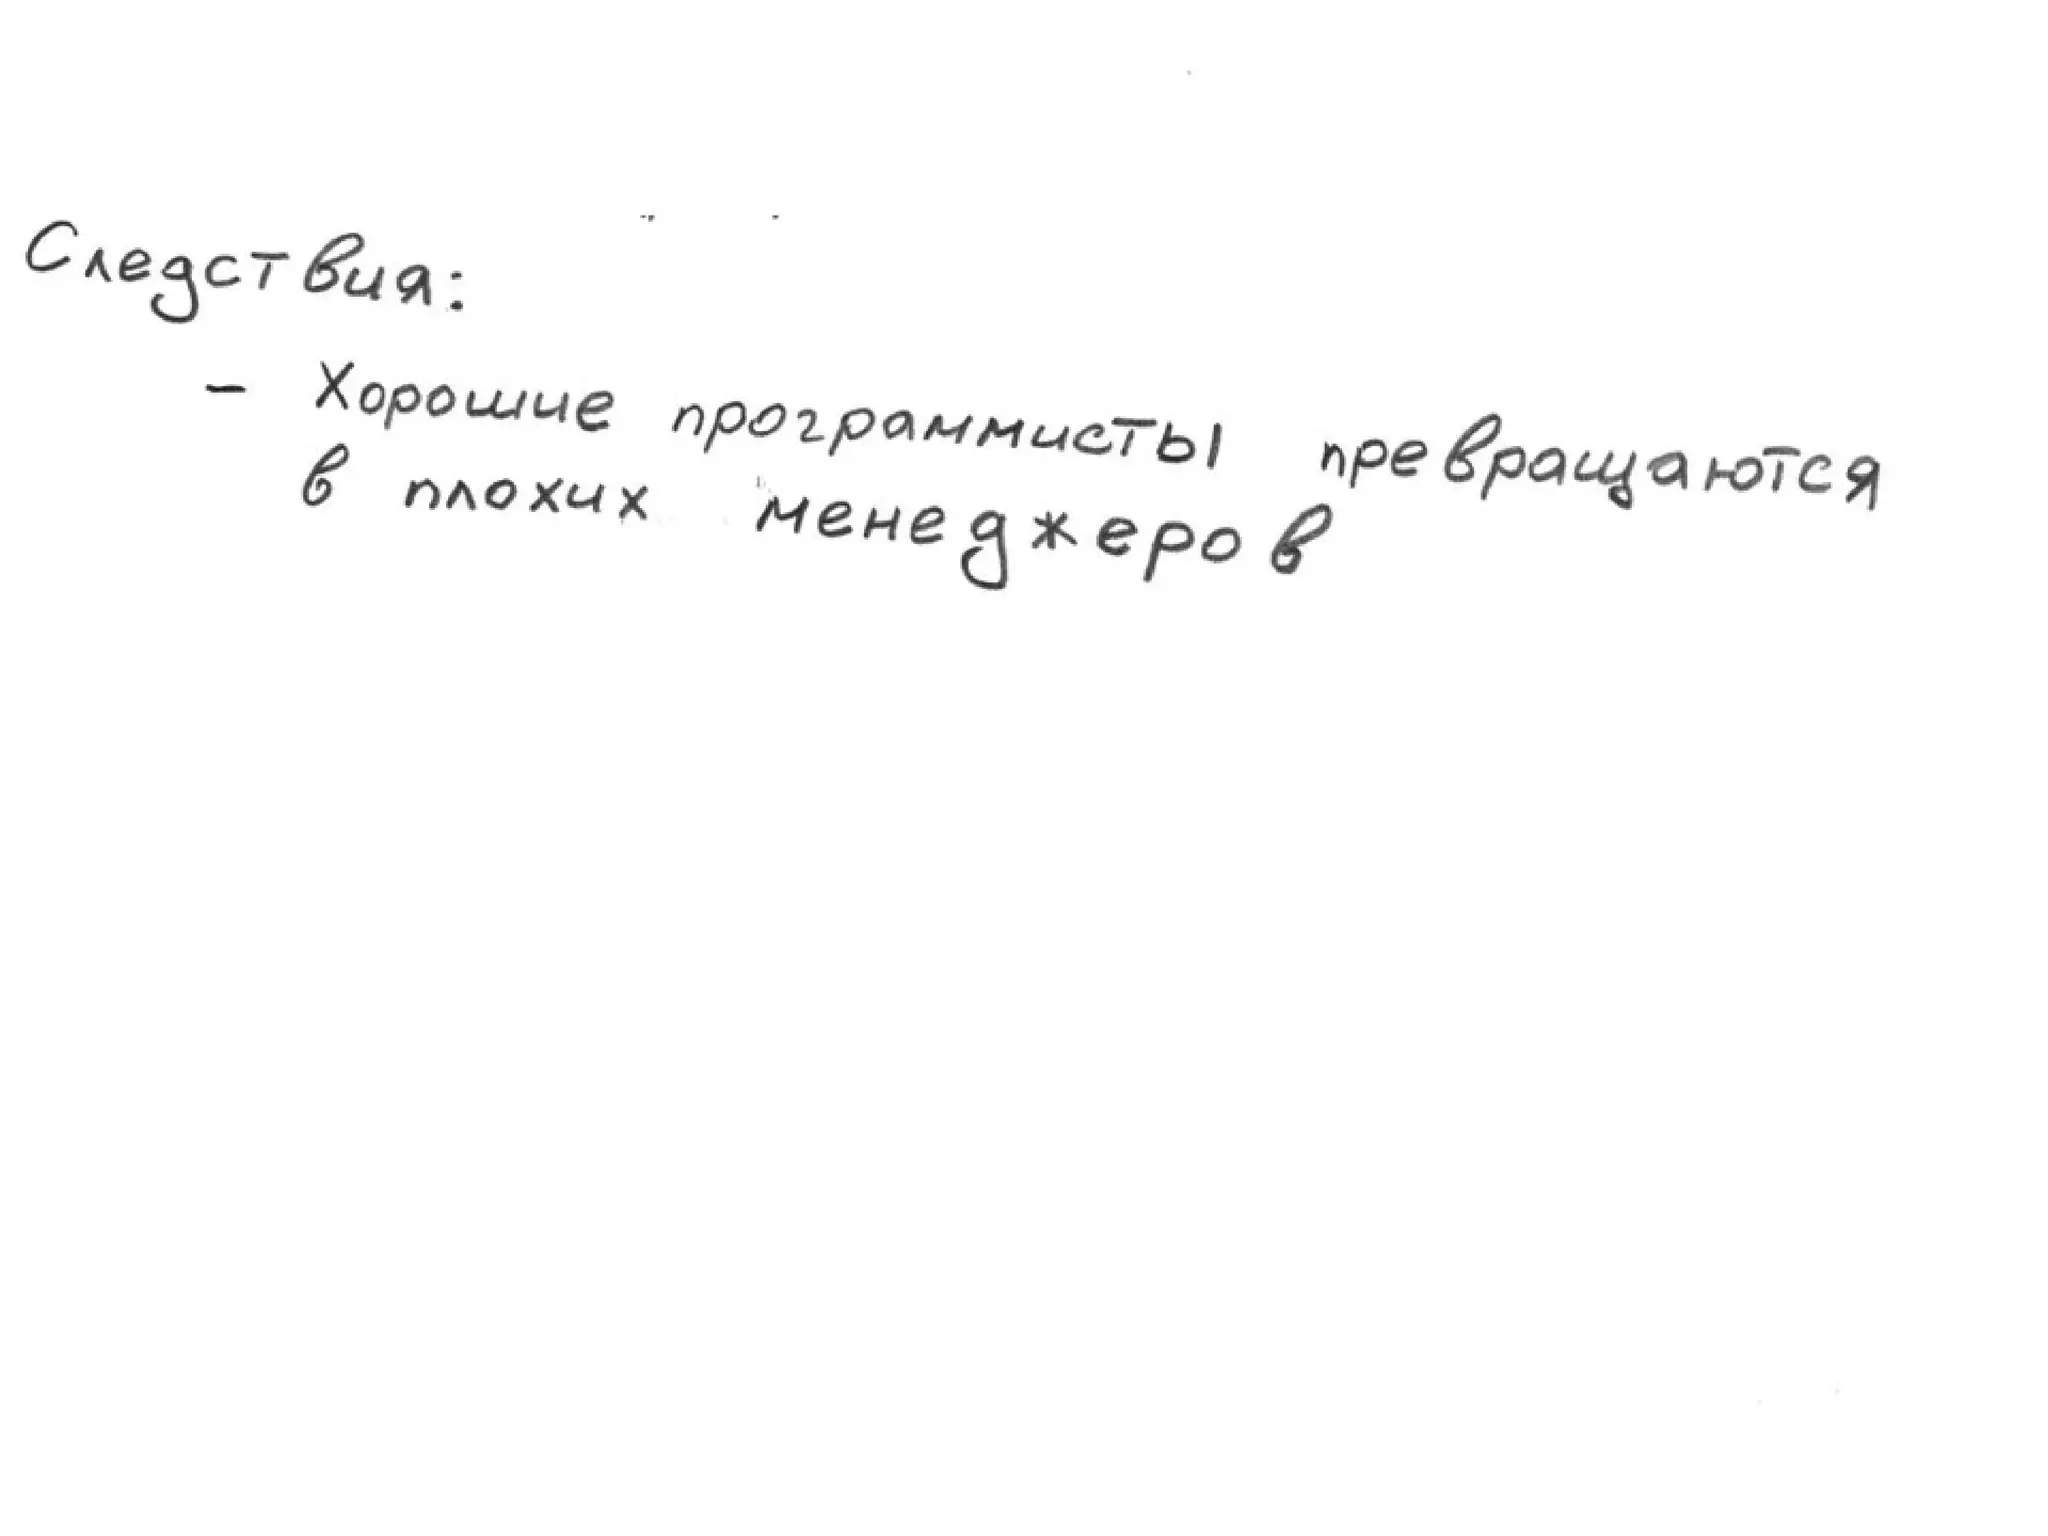 Следствия:
- Хорошие программисты превращаются
в плохих менеджеров